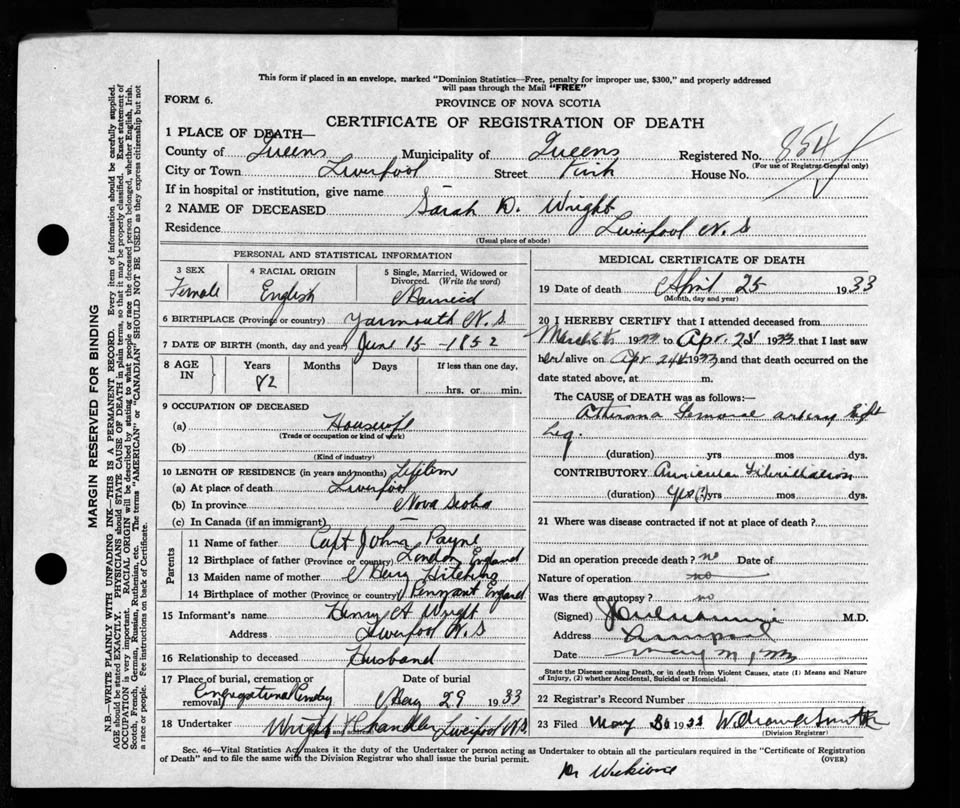 This form if placed in an envelope, marked "Dominion Statistics—Free, penalty for improper use, $300," and properly addressed
will pass through the Mail "FREE"
FORM 6.
PROVINCE OF NOVA SCOTIA
CERTIFICATE OF REGISTRATION OF DEATH
1 PLACE OF DEATH—
County of Queens Municipality of Queens Registered No. 854
(For use of Registrar-General only)
City or Town Liverpool Street House No.
If in hospital or institution, give name
2 NAME OF DECEASED Sarah D. Wright
Residence Liverpool N.S
(Usual place of abode)
PERSONAL AND STATISTICAL INFORMATION
3 SEX
Female
4 RACIAL ORIGIN
English
5 Single, Married, Widowed or
Divorced. (Write the word)
Married
6 BIRTHPLACE (Province or country) Yarmouth N.S
7 DATE OF BIRTH (month, day and year) June 15-1852
8 AGE IN
Years Months Days If less than one day,
82 hrs. or min.
9 OCCUPATION OF DECEASED
(a) Housewife
(Trade or occupation or kind of work)
(b)
(Kind of industry)
10 LENGTH OF RESIDENCE (in years and months)
(a) At place of death Liverpool
(b) In province Nova Scotia
(c) In Canada (if an immigrant) —
Parents
11 Name of father Capt John Payne
12 Birthplace of father (Province or country) London England
13 Maiden name of mother
14 Birthplace of mother (Province or country) England
15 Informant's name Henry A Wright
Address Liverpool N.S
16 Relationship to deceased Husband
17 Place of burial, cremation or
removal Congregational Cemetery
Date of burial
29 1933
18 Undertaker Wright & Chandler Liverpool N.S.
Name and address
MEDICAL CERTIFICATE OF DEATH
19 Date of death April 25 1933
(Month, day and year)
20 I HEREBY CERTIFY that I attended deceased from
March 1933 to Apr. 25 1933 that I last saw
her alive on Apr 24 1933 and that death occurred on the
date stated above, at m.
The CAUSE of DEATH was as follows:—
Atheroma Femoral artery Right
Leg.
(duration) yrs. mos. dys.
CONTRIBUTORY Auricular Fibrillation
(duration) yrs mos dys.
21 Where was disease contracted if not at place of death?
Did an operation precede death? no Date of
Nature of operation no
Was there an autopsy? no
(Signed) M.D.
Address Liverpool
Date May
State the Disease causing Death, or in death from Violent Causes, state (1) Means and Nature
of Injury, (2) whether Accidental, Suicidal or Homicidal.
22 Registrar's Record Number
23 Filed May 1933
(Division Registrar)
Sec. 46—Vital Statistics Act, makes it the duty of the Undertaker or person acting as Undertaker to obtain all the particulars required in the "Certificate of Registration
of Death" and to file the same with the Division Registrar who shall issue the burial permit.
(OVER)
Dr
MARGIN RESERVED FOR BINDING
N.B.—WRITE PLAINLY WITH UNFADING INK—THIS IS A PERMANENT RECORD. Every item of information should be carefully supplied.
AGE should be stated EXACTLY. PHYSICIANS should STATE CAUSE OF DEATH in plain terms, so that it may be properly classified. Exact statement of
OCCUPATION is very important. RACIAL ORIGIN will be described by stating to what people or race the deceased person belonged, whether English, Irish,
Scotch, French, German, Russian, Ruthenian, etc. The terms "AMERICAN" or "CANADIAN" SHOULD NOT BE USED as they express citizenship but not
a race or people. Fee instructions on back of Certificate.